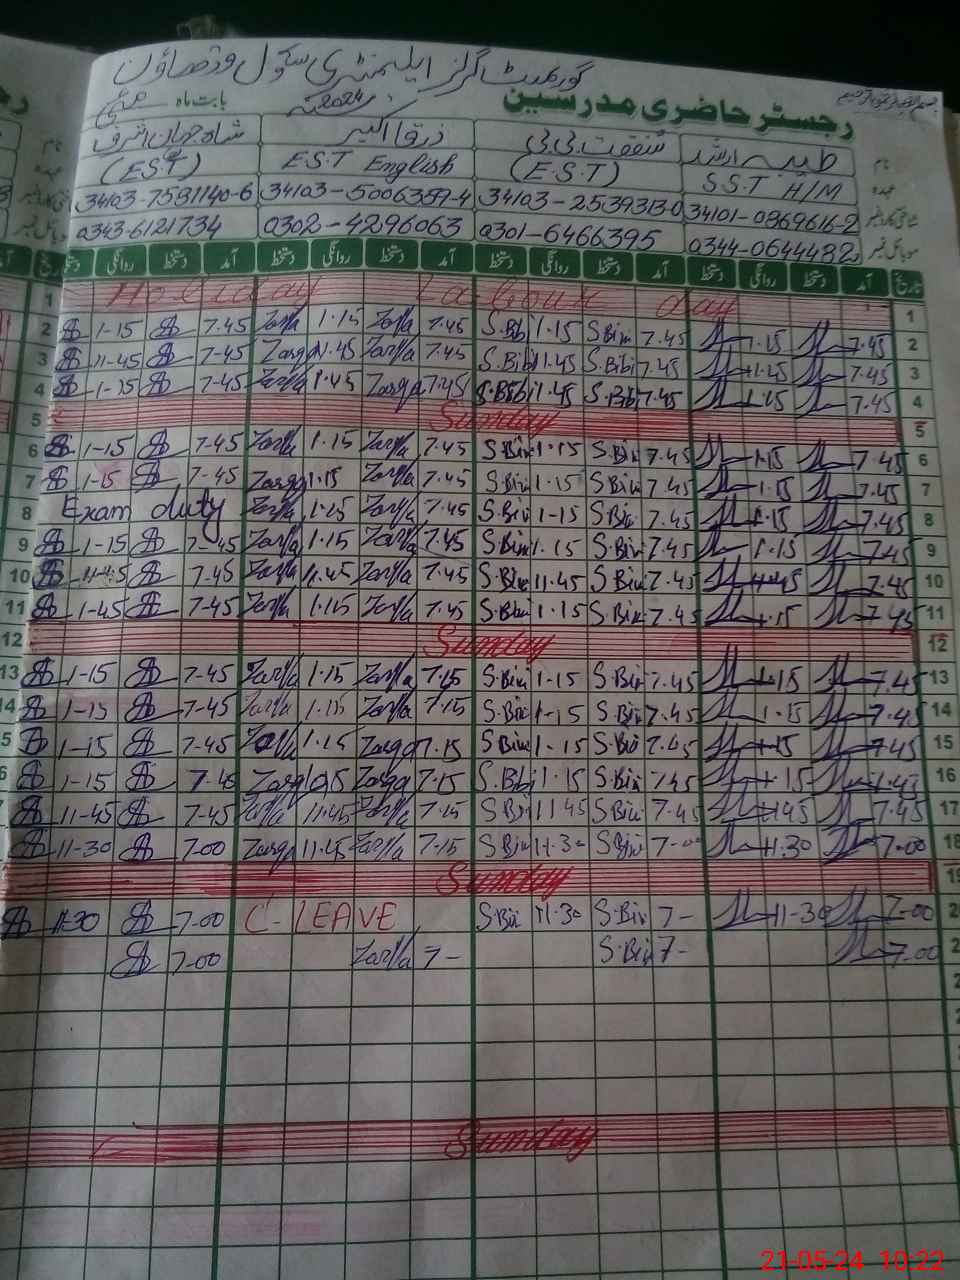 گورنمنٹ گرلز ایلیمنٹری سکول
رجسٹر حاضری مدرسین
بابت ماہ مئی 2024
نام طیبہ ارشد شفقت بی بی زرقا اکبر شاہ جہاں اشرف
عہدہ S.S.T H/M (E.S.T) E.S.T English (E.S.T)
34101-0869616-2 34103-2539313-0 34103-5006359-4 34103-7581140-6
موبائل نمبر 0344-0644482 0301-6466395 0302-4296063 0343-6121734
تاریخ آمد دستخط روانگی دستخط آمد دستخط روانگی دستخط آمد دستخط روانگی دستخط آمد دستخط روانگی دستخط تاریخ
1 Holiday Labour day 1
2 1-15 7.45 Zarqa 1.15 Zarqa 7.45 S.Bibi 1.15 S.Bibi 7.45 1.15 7.45 2
3 11-45 7-45 Zarqa 11.45 Zarqa 7.45 S.Bibi 11.45 S.Bibi 7.45 11.45 7.45 3
4 1-15 7-45 Zarqa Zarqa 7.45 S.Bibi S.Bibi 7.45 1.15 7.45 4
5 Sunday 5
6 1-15 7-45 Zarqa 1.15 Zarqa 7.45 S.Bibi 1.15 S.Bibi 7.45 1.15 7.45 6
7 1-15 7-45 Zarqa 1.15 Zarqa 7.45 S.Bibi 1.15 S.Bibi 7.45 1.15 7.45 7
8 Exam duty Zarqa 1.15 Zarqa 7.45 S.Bibi 1-15 S.Bibi 7.45 1.15 7.45 8
9 1-15 7-45 Zarqa 1.15 Zarqa 7.45 S.Bibi 1.15 S.Bibi 7.45 1.15 7.45 9
10 7-45 Zarqa 11.45 Zarqa 7.45 S.Bibi 11.45 S.Bibi 7.45 11.45 7.45 10
11 1-45 7-45 Zarqa 1.15 Zarqa 7.45 S.Bibi 1.15 S.Bibi 7.45 1.15 7.45 11
12 Sunday 12
13 1-15 7-45 Zarqa 1.15 Zarqa 7.15 S.Bibi 1-15 S.Bibi 7.45 1.15 7.45 13
14 1-15 7-45 Zarqa 1.15 Zarqa 7.15 S.Bibi 1-15 S.Bibi 7.45 1.15 7.45 14
15 1-15 7-45 Zarqa 1.15 Zarqa 7.15 S.Bibi 1-15 S.Bibi 7.45 1.15 7.45 15
16 1-15 7-45 Zarqa 1.15 Zarqa 7.15 S.Bibi 1.15 S.Bibi 7.45 1.15 7.45 16
11-45 7-45 Zarqa 11.45 Zarqa 7.15 S.Bibi 11 45 S.Bibi 7.45 11.45 7.45 17
11-30 7.00 Zarqa 11.15 Zarqa 7.15 S.Bibi 11.30 S.Bibi 7-00 11.30 7.00 18
Sunday 19
11-30 7-00 C-LEAVE S.Bibi 11.30 S.Bibi 7- 11-30 7-00
7-00 Zarqa 7- S.Bibi 7- 7.00
Sunday
21-05-24 10:22